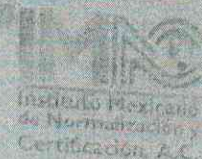 IMNC
Instituto Mexicano
de Normalización y
Certificación, A.C.